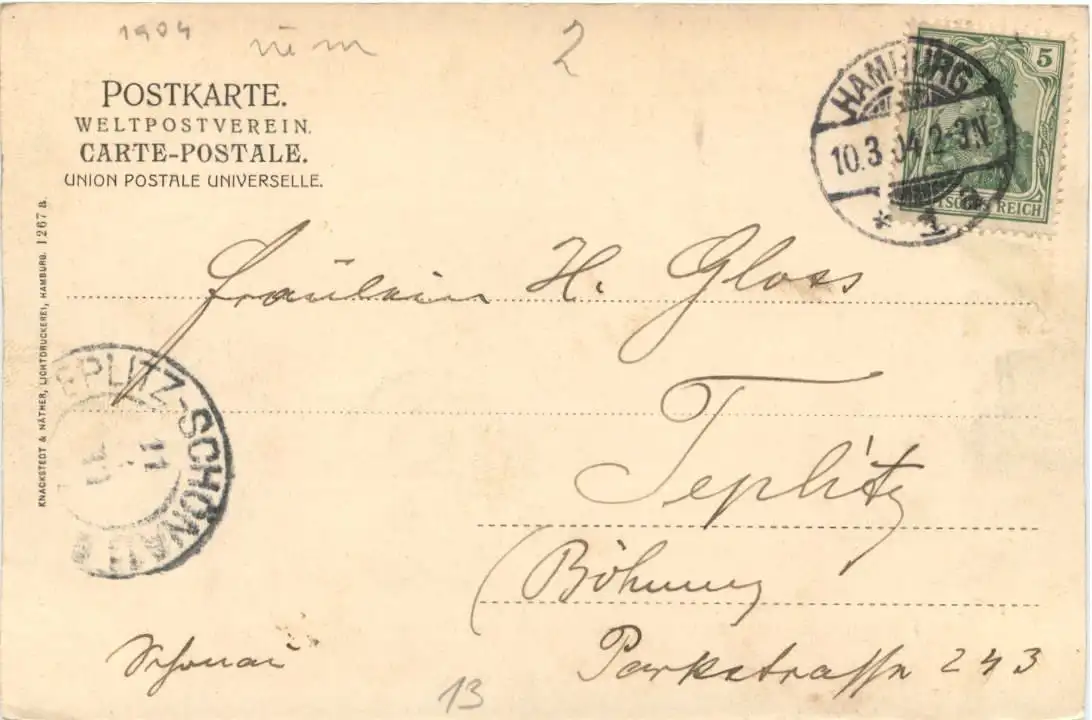 1904
2
POSTKARTE.
WELTPOSTVEREIN.
CARTE-POSTALE.
UNION POSTALE UNIVERSELLE.
HAMBURG
10.3.04.2-3N.
* 1
5
DEUTSCHES REICH
KNACKSTEDT & NÄTHER, LICHTDRUCKEREI, HAMBURG. 1267 a.
Fräulein H. Gloss
TEPLITZ-SCHÖNAU
11
Teplitz
(Böhmen)
Schönau
Parkstrasse 243
13